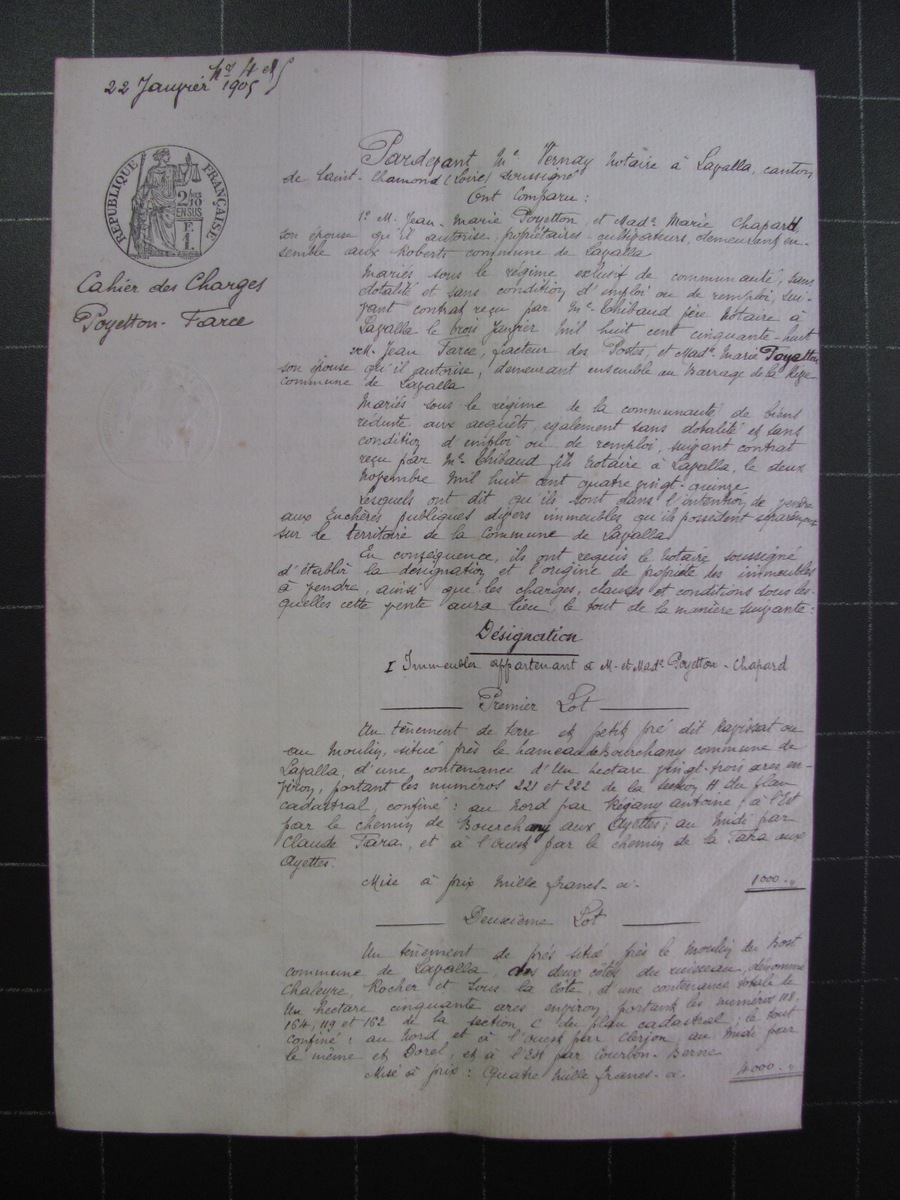 22 Janvier 1905
RÉPUBLIQUE FRANÇAISE
2
EN SUS
Cahier des Charges
Poyetton-Farce
Pardevant Me Vernay Notaire à Lavalla, canton
de Saint-Chamond (Loire) soussigné
Ont Comparu :
1° M. Jean-Marie Poyetton, et Made Marie Chapard
son épouse qu'il autorise, propriétaires-cultivateurs, demeurant en-
semble aux Roberts commune de Lavalla
Mariés sous le régime exclusif de communauté, sans
dotalité et sans condition d'emploi ou de remploi, sui-
vant contrat reçu par Me Thibaud père Notaire à
Lavalla le trois Janvier Mil huit cent cinquante-huit
2° M. Jean Farce, facteur des Postes, et Made Marie Poyetton
son épouse qu'il autorise, demeurant ensemble au Barrage de la Rive
commune de Lavalla
Mariés sous le régime de la communauté de biens
réduite aux acquêts, également sans dotalité et sans
condition d'emploi ou de remploi, suivant contrat
reçu par Me Thibaud fils Notaire à Lavalla, le deux
Novembre Mil huit cent quatre vingt-quinze
Lesquels ont dit qu'ils sont dans l'intention de vendre
aux Enchères publiques divers immeubles qu'ils possèdent séparément
sur le territoire de la Commune de Lavalla
En conséquence, ils ont requis le Notaire soussigné
d'établir la désignation et l'origine de propriété des immeubles
à vendre, ainsi que les charges, clauses et conditions sous les-
quelles cette vente aura lieu, le tout de la manière suivante :
Désignation
I Immeubles appartenant à M. et Made Poyetton-Chapard
Premier Lot
Un tènement de terre et petit pré dit Ravissat ou
au Moulin, situé près le hameau de Bourchany commune de
Lavalla, d'une contenance d'Un hectare vingt-trois ares en-
viron, portant les numéros 221 et 222 de la section H du plan
cadastral, confiné : au Nord par Régany Antoine ; à l'Est
par le chemin de Bourchany aux Ayettes ; au midi par
Claude Fara, et à l'ouest par le chemin de la Fara aux
Ayettes.
Mise à prix Mille francs 1000
Deuxième Lot
Un tènement de prés situé près le Moulin du Bost
commune de Lavalla, des deux côtés du ruisseau, dénommé
Chaleyre, Rocher et Sous la côte, d'une contenance totale de
Un hectare cinquante ares environ, portant les numéros 118,
164, 119 et 162 de la section C du plan cadastral ; le tout
confiné : au Nord et à l'ouest par Clerjon, au Midi par
le même et Dorel, et à l'Est par Courbon-Berne
Mise à prix : Quatre Mille francs 4000